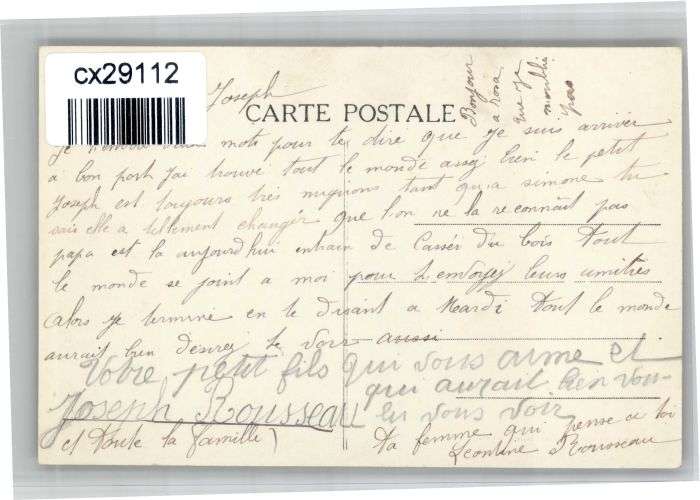 cx29112
Joseph
CARTE POSTALE
Bonjour
a rosa
que je
moublie
pas
je mots pour te dire que je suis arriver
a bon port j'ai trouvé tout le monde assez bien le petit
Joseph est toujours très mignons tant qu'a simone tu
sais elle a tellement changér que l'on ne la reconnait pas
papa est la aujourd'hui entrain de Cassér du bois Tout
le monde se joint a moi pour t envoyez leurs amitiés
Alors je terminé en te disant a Mardi Tout le monde
aurait bien desirez te voir aussi
Votre petit fils qui vous aime et
qui aurait bien vou-
lu vous voir
Joseph Rousseau
et toute la famille
Ta femme qui pense a toi
Leontine Rousseau